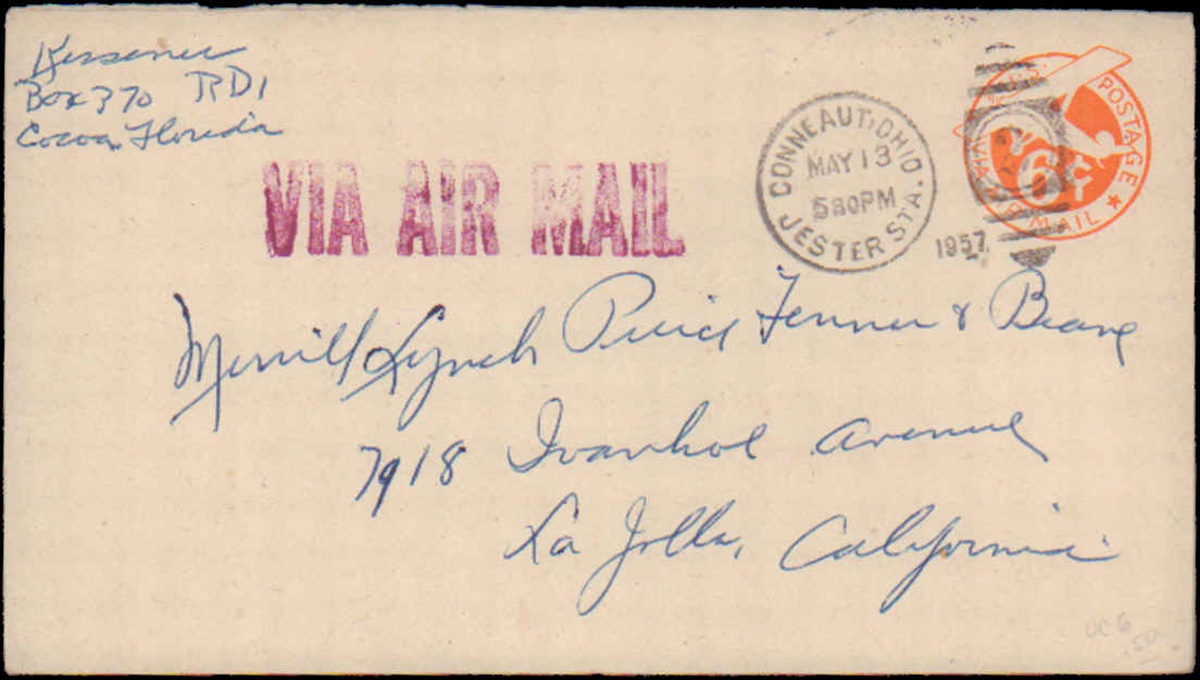 Kessener
Box 370 RD1
Cocoa, Florida
VIA AIR MAIL
CONNEAUT, OHIO
MAY 13
530PM
JESTER STA.
1957
POSTAGE
6¢
AIR MAIL
Merrill Lynch Pierce Fenner & Beane
7918 Ivanhoe Avenue
La Jolla, California
UC6